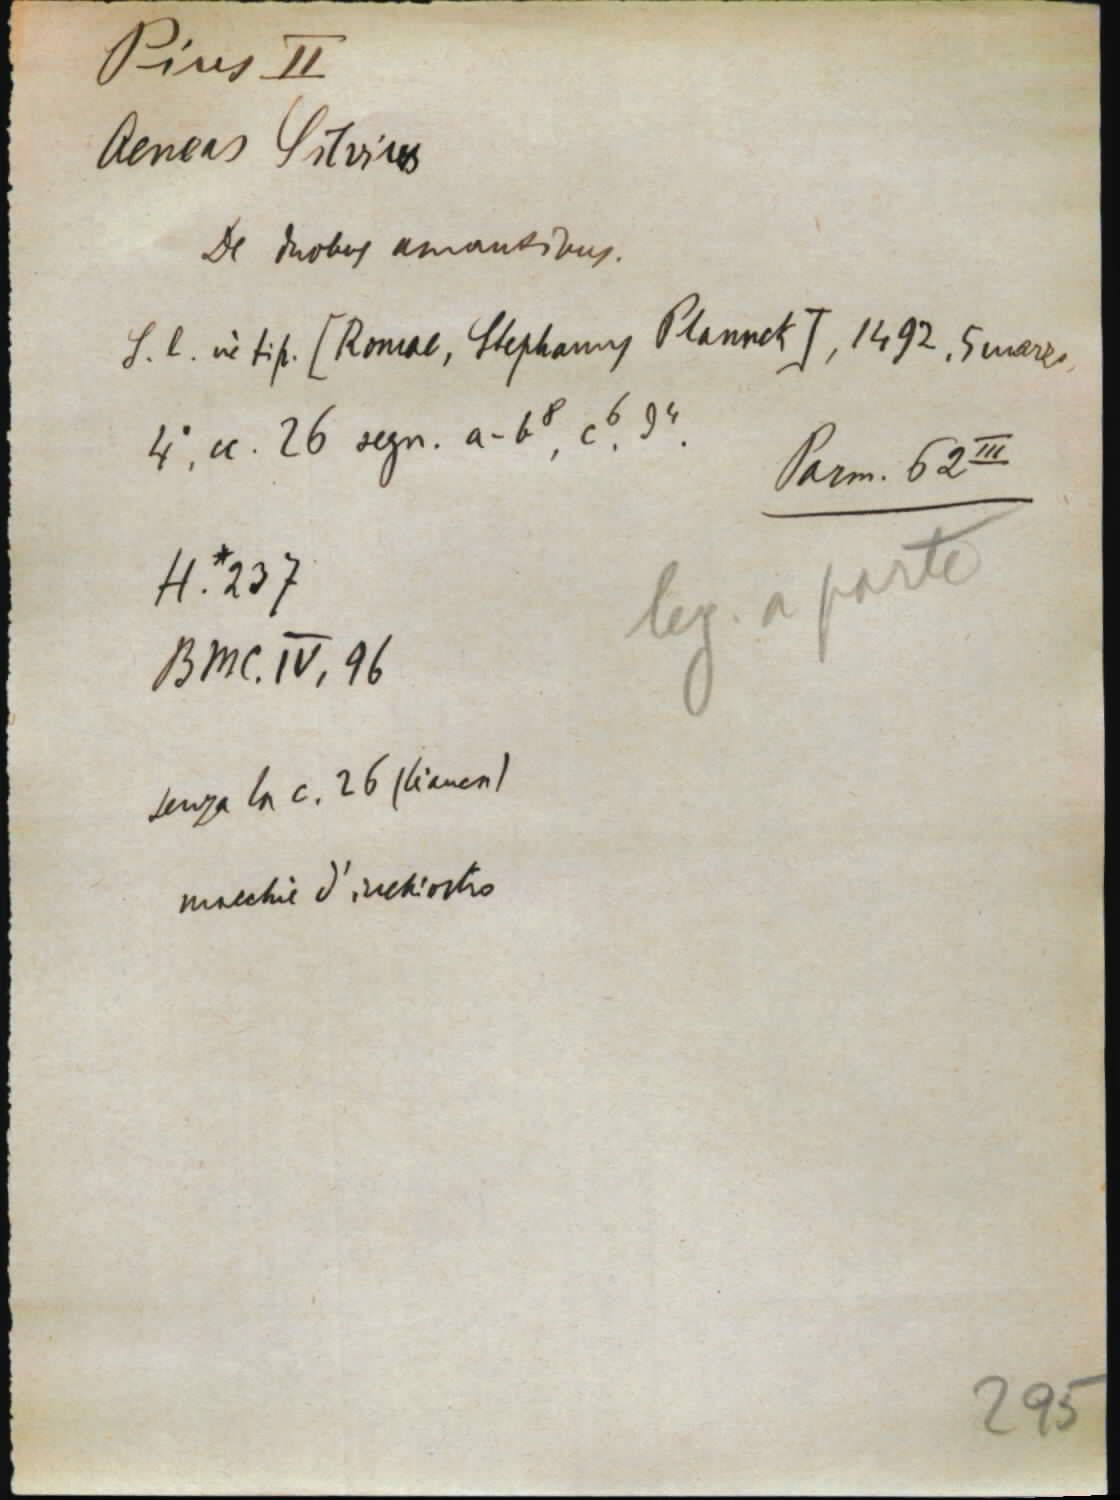 Pius II
Aeneas Silvius
De duobus amantibus.
S. l. nè tip. [Romae, Stephanus Plannck], 1492, 5 marzo,
4°, cc. 26 segn. a-b⁸, c⁶, d⁴.
Parm. 62 III
leg. a parte
H.*237
BMC. IV, 96
senza la c. 26 (bianca)
macchie d'inchiostro
295